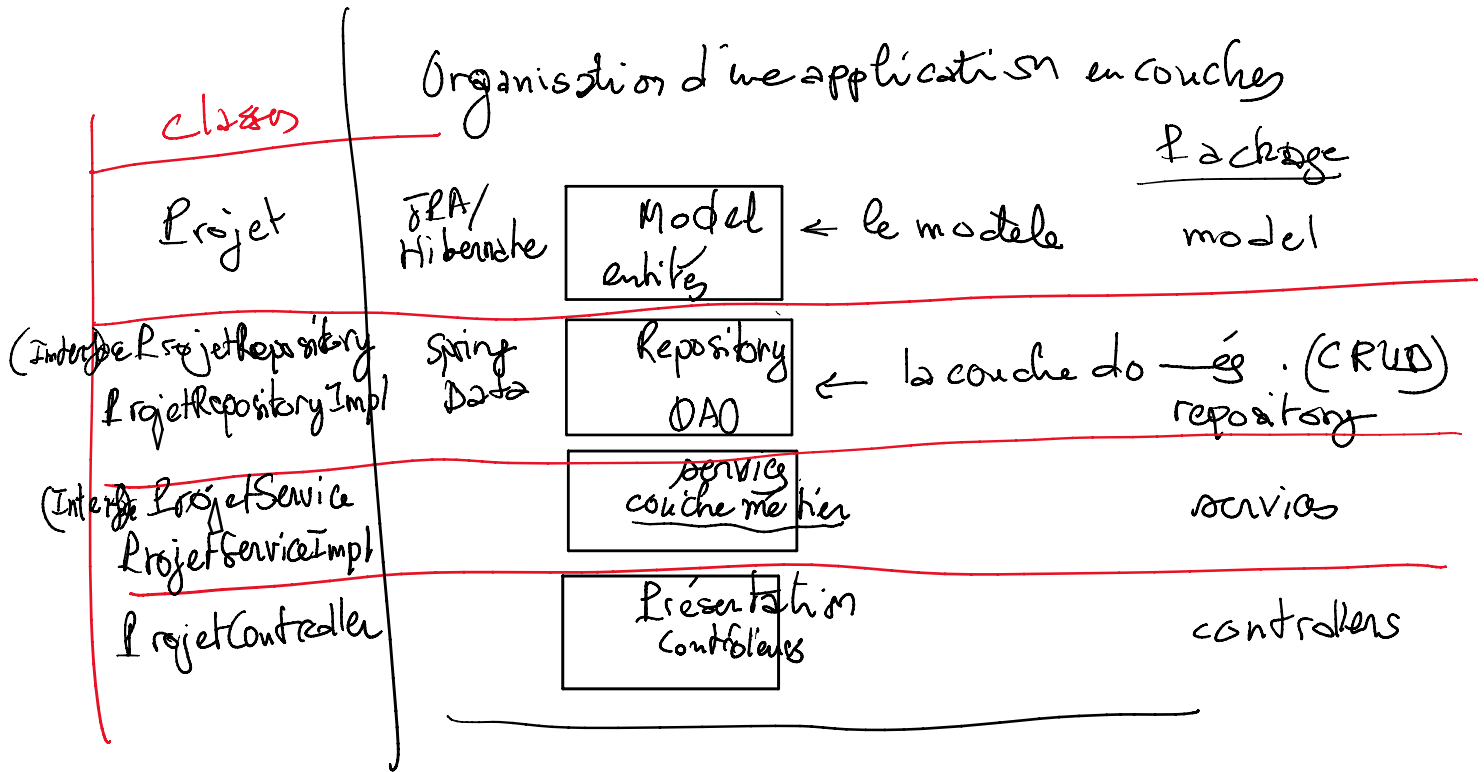 Organisation d'une application en couches
classes
Package
Projet
JPA/
Hibernate
Model
entités
← le modèle
model
(Interface ProjetRepository
ProjetRepositoryImpl
Spring
Data
Repository
DAO
← la couche do és . (CRUD)
repository
(Interface ProjetService
ProjetServiceImpl
service
couche métier
services
ProjetController
Présentation
contrôleurs
controllers